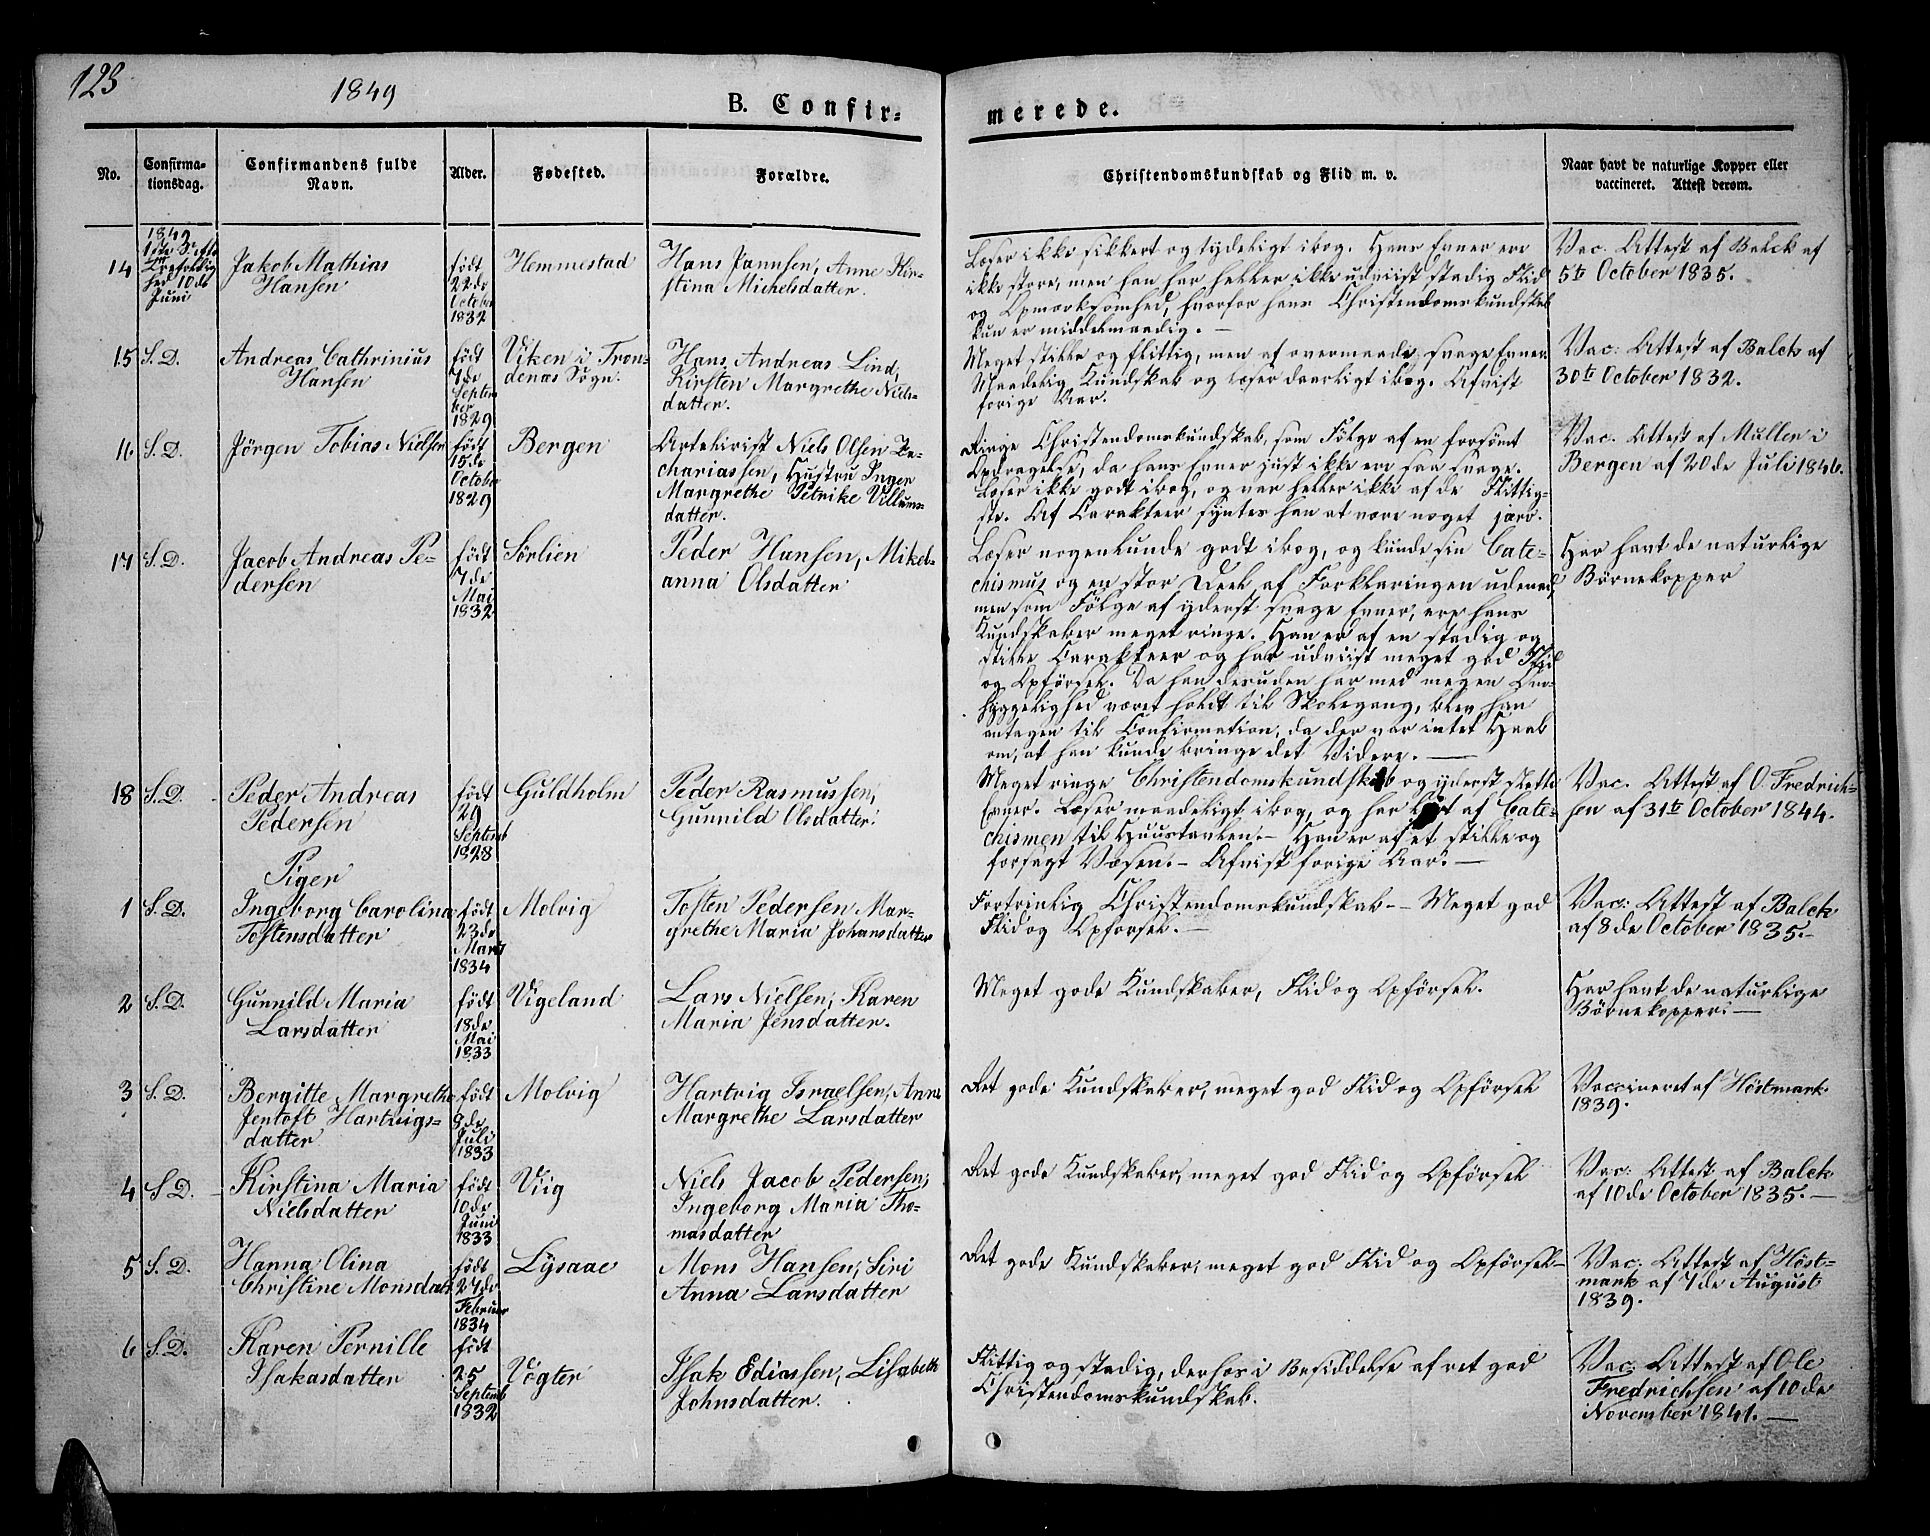 123
1849
B. Confir=
merede.
No.
Confirma-
tionsdag.
Confirmandens fulde
Navn.
Alder.
Fødested.
Forældre.
Christendomskundskab og Flid m. v.
Naar havt de naturlige Kopper eller
vaccineret. Attest derom.
14
1849
1ste S. eft.
Trefoldig
hed 10de
Juni
Jakob Mathias
Hansen
født
22de
October
1832
Hemmestad
Hans Jannsen, Anne Kir-
stina Michelsdatter.
Læser ikke sikkert og tydeligt i bog. Hans Evner ere
ikke store, men han har heller ikke udviist stadig Flid
og Opmærksomhed, hvorfor hans Christendomskundskab
kun er middelmaadig. —
Vac. Attest af Balck af
5te October 1835.
15
S. D.
Andreas Cathrinius
Hansen
født
7de
Septem
ber
1829
Viken i Tron-
denæs Sogn.
Hans Andreas Lind,
Kirsten Margrethe Niels-
datter.
Meget stille og flittig, men af overmaade svage Evner.
Maadelig Kundskab og læser daarligt i bog. Afvist
forige Aar.
Vac: Attest af Balck af
30te October 1832.
16
S. D.
Jörgen Tobias Nielsen
født
15de
October
1829
Bergen
Niels Olsen Za-
chariassen, Hustru Inger
Margrethe Petrike Villums-
datter.
Ringe Christendomskundskab, som Følge af en forsømt
Opdragelse, da hans Evner just ikke ere saa svage.
Læser ikke godt i bog, og var heller ikke af de Flittig-
ste. Af Carakteer syntes han at være noget
Vac. Attest af Muller i
Bergen af 20de Juli 1846.
17
S. D.
Jacob Andreas Pe-
dersen
født
7de
Mai
1832
Sørlien
Peder Hansen, Mikel-
anna Olsdatter
Læser nogenlunde godt i bog, og kunde sin Cate-
chismus og en stor Deel af Forklaringen udenad,
men som Følge af yderst svage Evner, ere hans
Kundskaber meget ringe. Han er af en stadig og
stille Carakteer og har udviist meget god Flid
og Opførsel. Da han desuden har med megen Om-
hyggelighed været holdt til Skolegang, blev han
antagen til Confirmation, da der var intet Haab
om, at han kunde bringe det Videre. —
Har havt de naturlige
Børnekopper
18
S. D.
Peder Andreas
Pedersen
født
29
Septemb
1828
Guldholm
Peder Rasmussen,
Gunnild Olsdatter.
Meget ringe Christendomskundskab og yderst slette
Evner. Læser maadeligt i bog, og har lært af Cate-
chismen til Huustavlen. — Han er af et stille og
forsagt Væsen. — Afvist forige Aar. —
Vac. Attest af O. Fredrich-
sen af 31te October 1844.
Piger
1
S. D.
Ingeborg Carolina
Tostensdatter
født
23de
Marts
1834
Molvig
Tosten Pedersen Mar-
grethe Maria Johansdatter
Fortrinlig Christendomskundskab. — Meget god
Flid og Opførsel. —
Vac: Attest af Balck
af 8de October 1835. —
2
S. D.
Gunnild Maria
Larsdatter
født
18de
Mai
1833
Vigeland
Lars Nielsen, Karen
Maria Jensdatter.
Meget gode Kundskaber, Flid og Opførsel.
Har havt de naturlige
Børnekopper. —
3
S. D.
Bergitte Margrethe
Jentoft Hartvigs-
datter
født
9de
Juli
1833
Molvig
Hartvig Israelsen, Anne
Margrethe Larsdatter
Ret gode Kundskaber, meget god Flid og Opførsel
Vaccineret af Höstmark
1839.
4
S. D.
Kirstina Maria
Nielsdatter
født
10de
Juni
1833
Viig
Niels Jacob Pedersen,
Ingeborg Maria Tho-
masdatter
Ret gode Kundskaber, meget god Flid og Opførsel
Vac: Attest af Balck
af 10de October 1835. —
5
S. D.
Hanna Olina
Christine Monsdatt
født
27de
Februar
1834
Lysaae
Mons Hansen, Siri
Anna Larsdatter
Ret gode Kundskaber, meget god Flid og Opførsel —
Vac: Attest af Höst-
mark af 7de August
1839.
6
S. D.
Karen Pernille
Isakasdatter
født
25
Septemb
1832
Vøgter
Isak Ediassen, Lisabeth
Johnsdatter.
Flittig og stadig, derhos i Besiddelse af ret god
Christendomskundskab.
Vac: Attest af Ole
Fredrichsen af 10de
November 1841. —